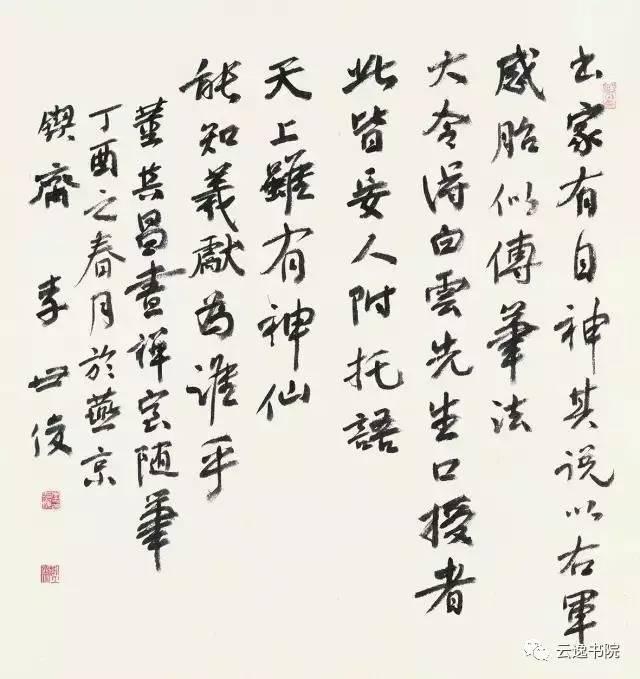 出家有自神其说以右軍
感胎似傳筆法
大令得白雲先生口授者
此皆妄人附托語
天上雖有神仙
能知羲獻為誰乎
董其昌畫禅室随筆
丁酉之春月於燕京
鍥齋 李世俊
云逸书院